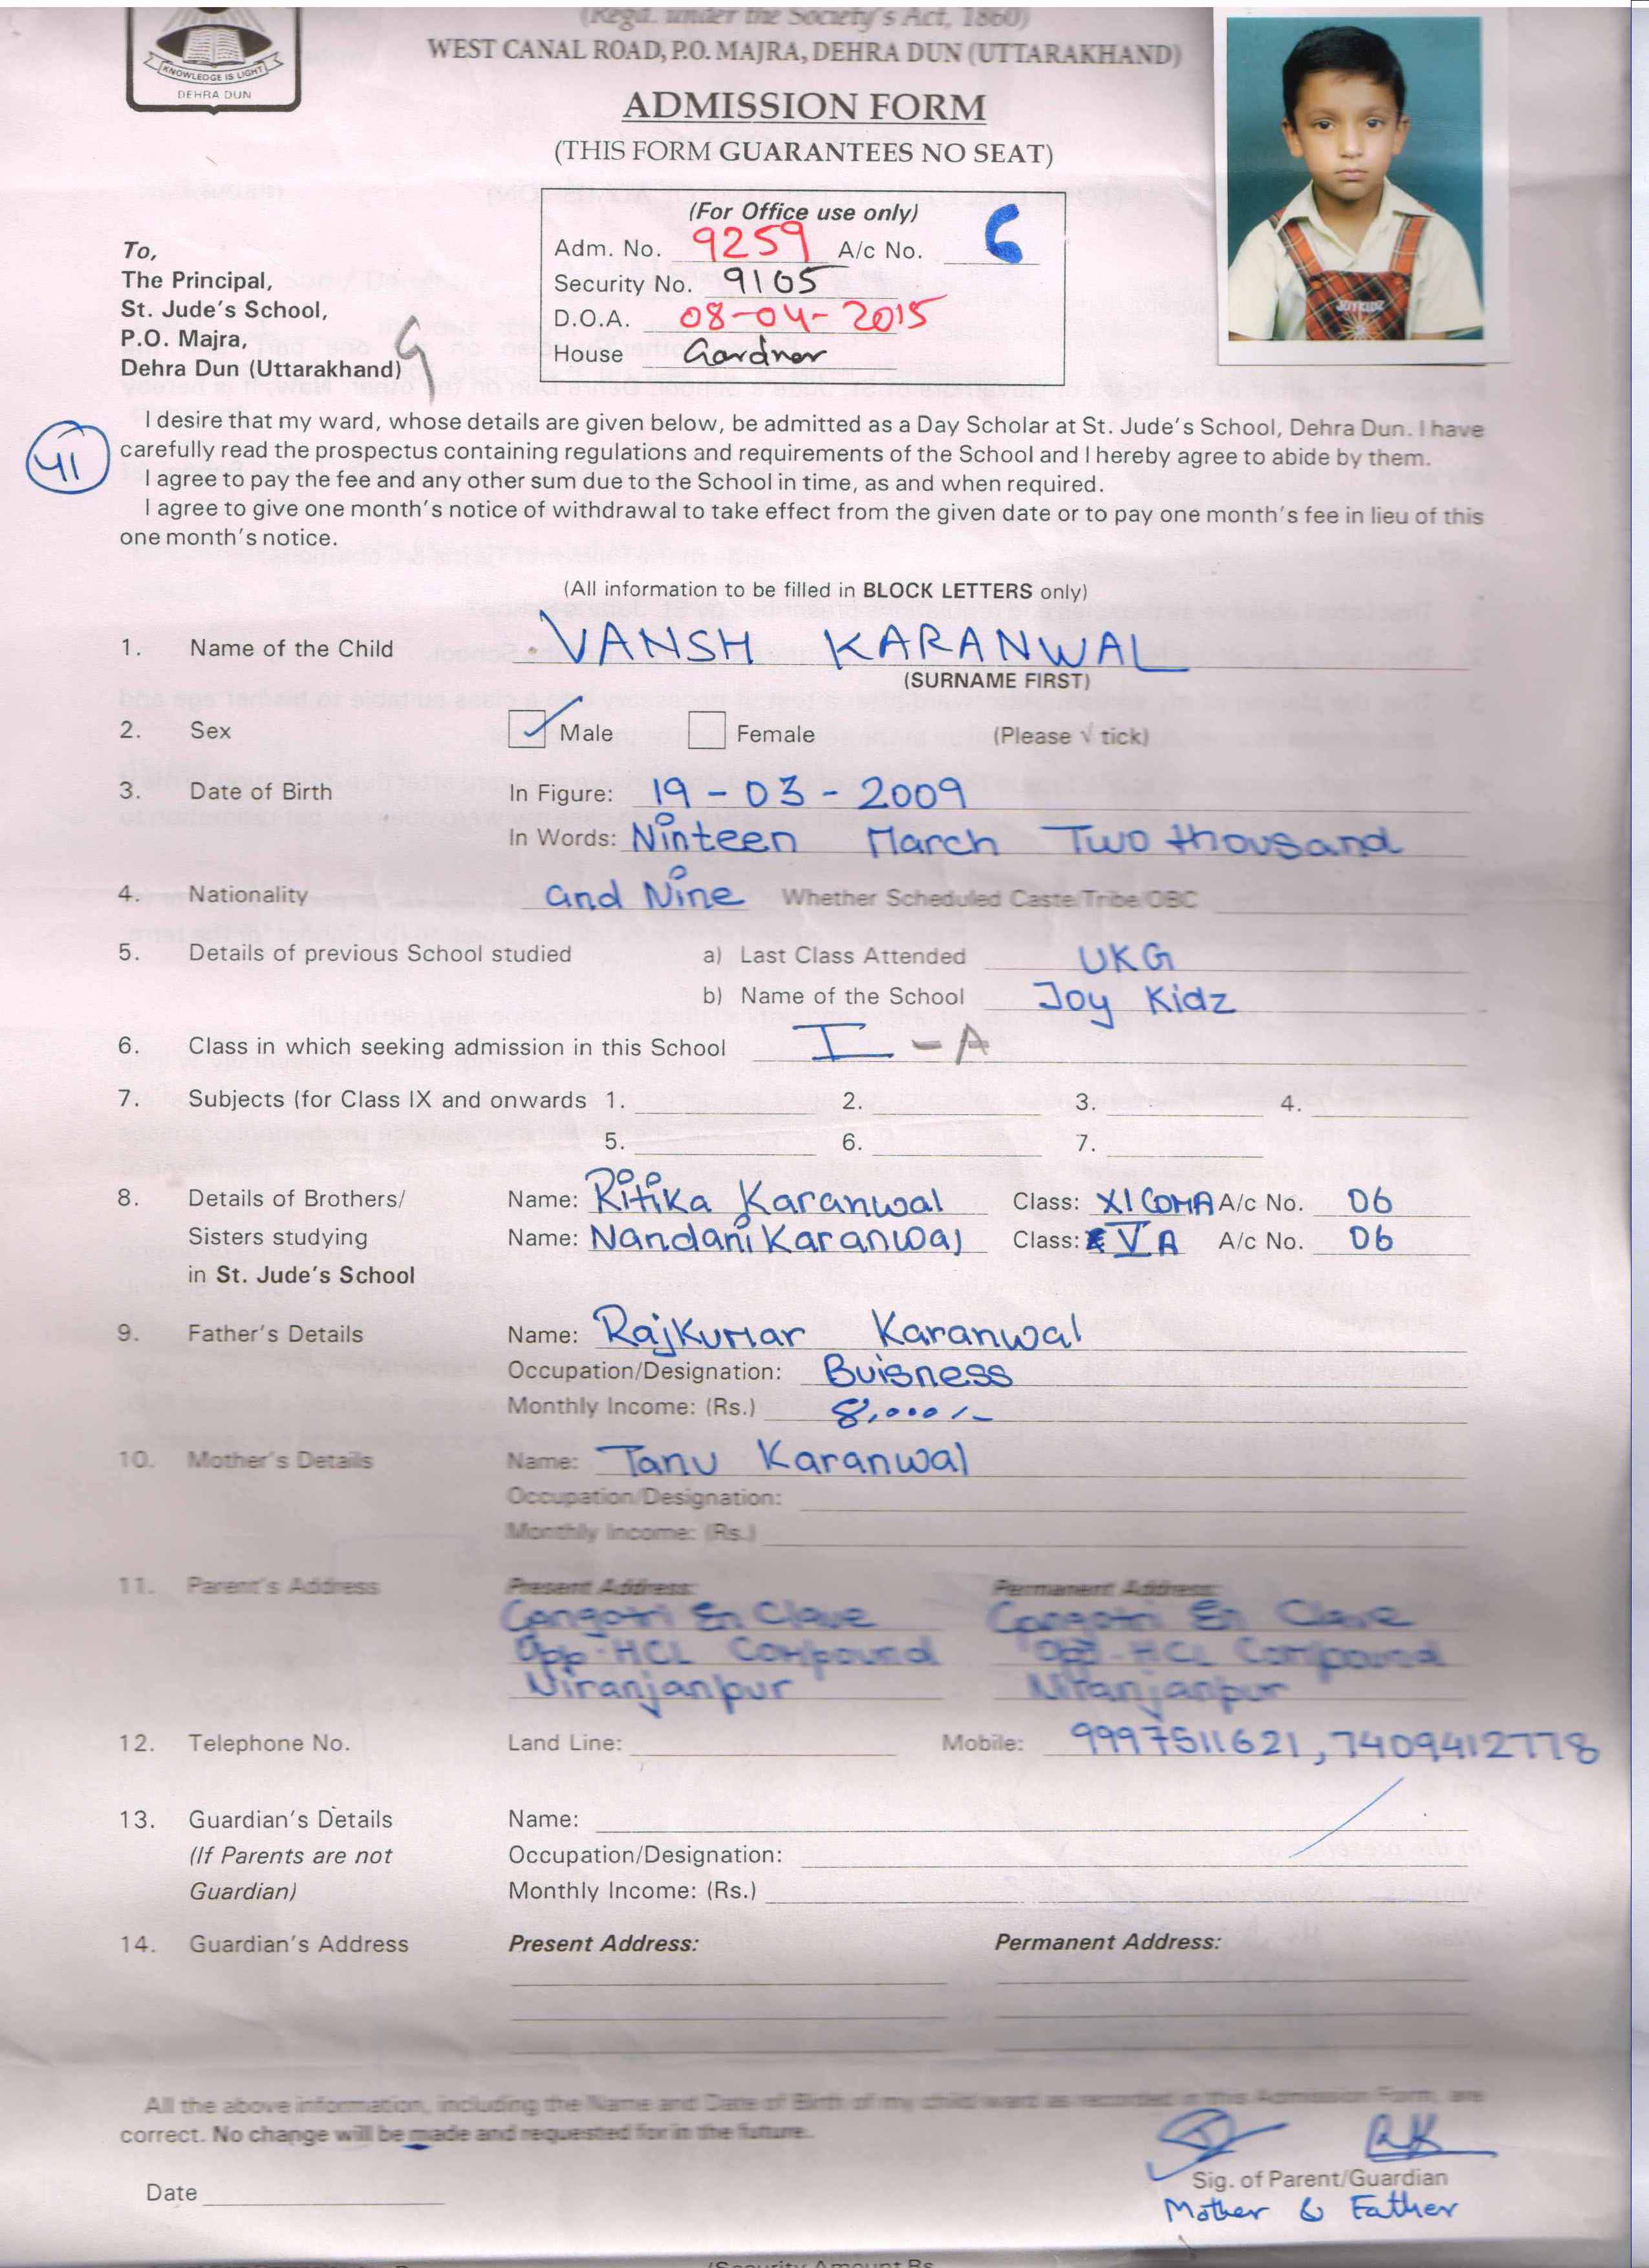 (Regd. under the Society's Act, 1860)
WEST CANAL ROAD, P.O. MAJRA, DEHRA DUN (UTTARAKHAND)
KNOWLEDGE IS LIGHT
DEHRA DUN
ADMISSION FORM
(THIS FORM GUARANTEES NO SEAT)
(For Office use only)
Adm. No. 9259 A/c No. 6
Security No. 9105
D.O.A. 08-04-2015
House Gardner
To,
The Principal,
St. Jude's School,
P.O. Majra,
Dehra Dun (Uttarakhand)
I desire that my ward, whose details are given below, be admitted as a Day Scholar at St. Jude's School, Dehra Dun. I have
41 carefully read the prospectus containing regulations and requirements of the School and I hereby agree to abide by them.
I agree to pay the fee and any other sum due to the School in time, as and when required.
I agree to give one month's notice of withdrawal to take effect from the given date or to pay one month's fee in lieu of this
one month's notice.
(All information to be filled in BLOCK LETTERS only)
1. Name of the Child VANSH KARANWAL
(SURNAME FIRST)
2. Sex ✓ Male Female (Please √ tick)
3. Date of Birth In Figure: 19-03-2009
In Words: Ninteen March Two thousand
4. Nationality and Nine Whether Scheduled Caste/Tribe/OBC
5. Details of previous School studied a) Last Class Attended UKG
b) Name of the School Joy Kidz
6. Class in which seeking admission in this School I - A
7. Subjects (for Class IX and onwards 1. 2. 3. 4.
5. 6. 7.
8. Details of Brothers/ Name: Ritika Karanwal Class: XI COMA A/c No. 06
Sisters studying Name: Nandani Karanwal Class: V A A/c No. 06
in St. Jude's School
9. Father's Details Name: Rajkumar Karanwal
Occupation/Designation: Buisness
Monthly Income: (Rs.) 8,000/-
10. Mother's Details Name: Tanu Karanwal
Occupation/Designation:
Monthly Income: (Rs.)
11. Parent's Address Present Address: Permanent Address:
Gangotri En Clave Gangotri En Clave
Opp-HCL Compound Opp-HCL Compound
Niranjanpur Niranjanpur
12. Telephone No. Land Line: Mobile: 9997511621, 7409412778
13. Guardian's Details Name:
(If Parents are not Occupation/Designation:
Guardian) Monthly Income: (Rs.)
14. Guardian's Address Present Address: Permanent Address:
All the above information, including the Name and Date of Birth of my child ward as recorded in this Admission Form, are
correct. No change will be made and requested for in the future.
Sig. of Parent/Guardian
Date
Mother & Father
(Security Amount Rs.